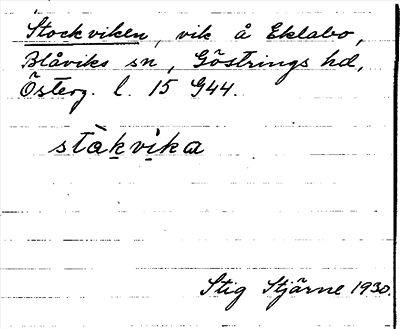 Stockviken, vik å Eklabo,
Blåviks sn, Göstrings hd,
Österg. l. 15 G44.
stàk̠vik̠a
Stig Stjärne 1930.